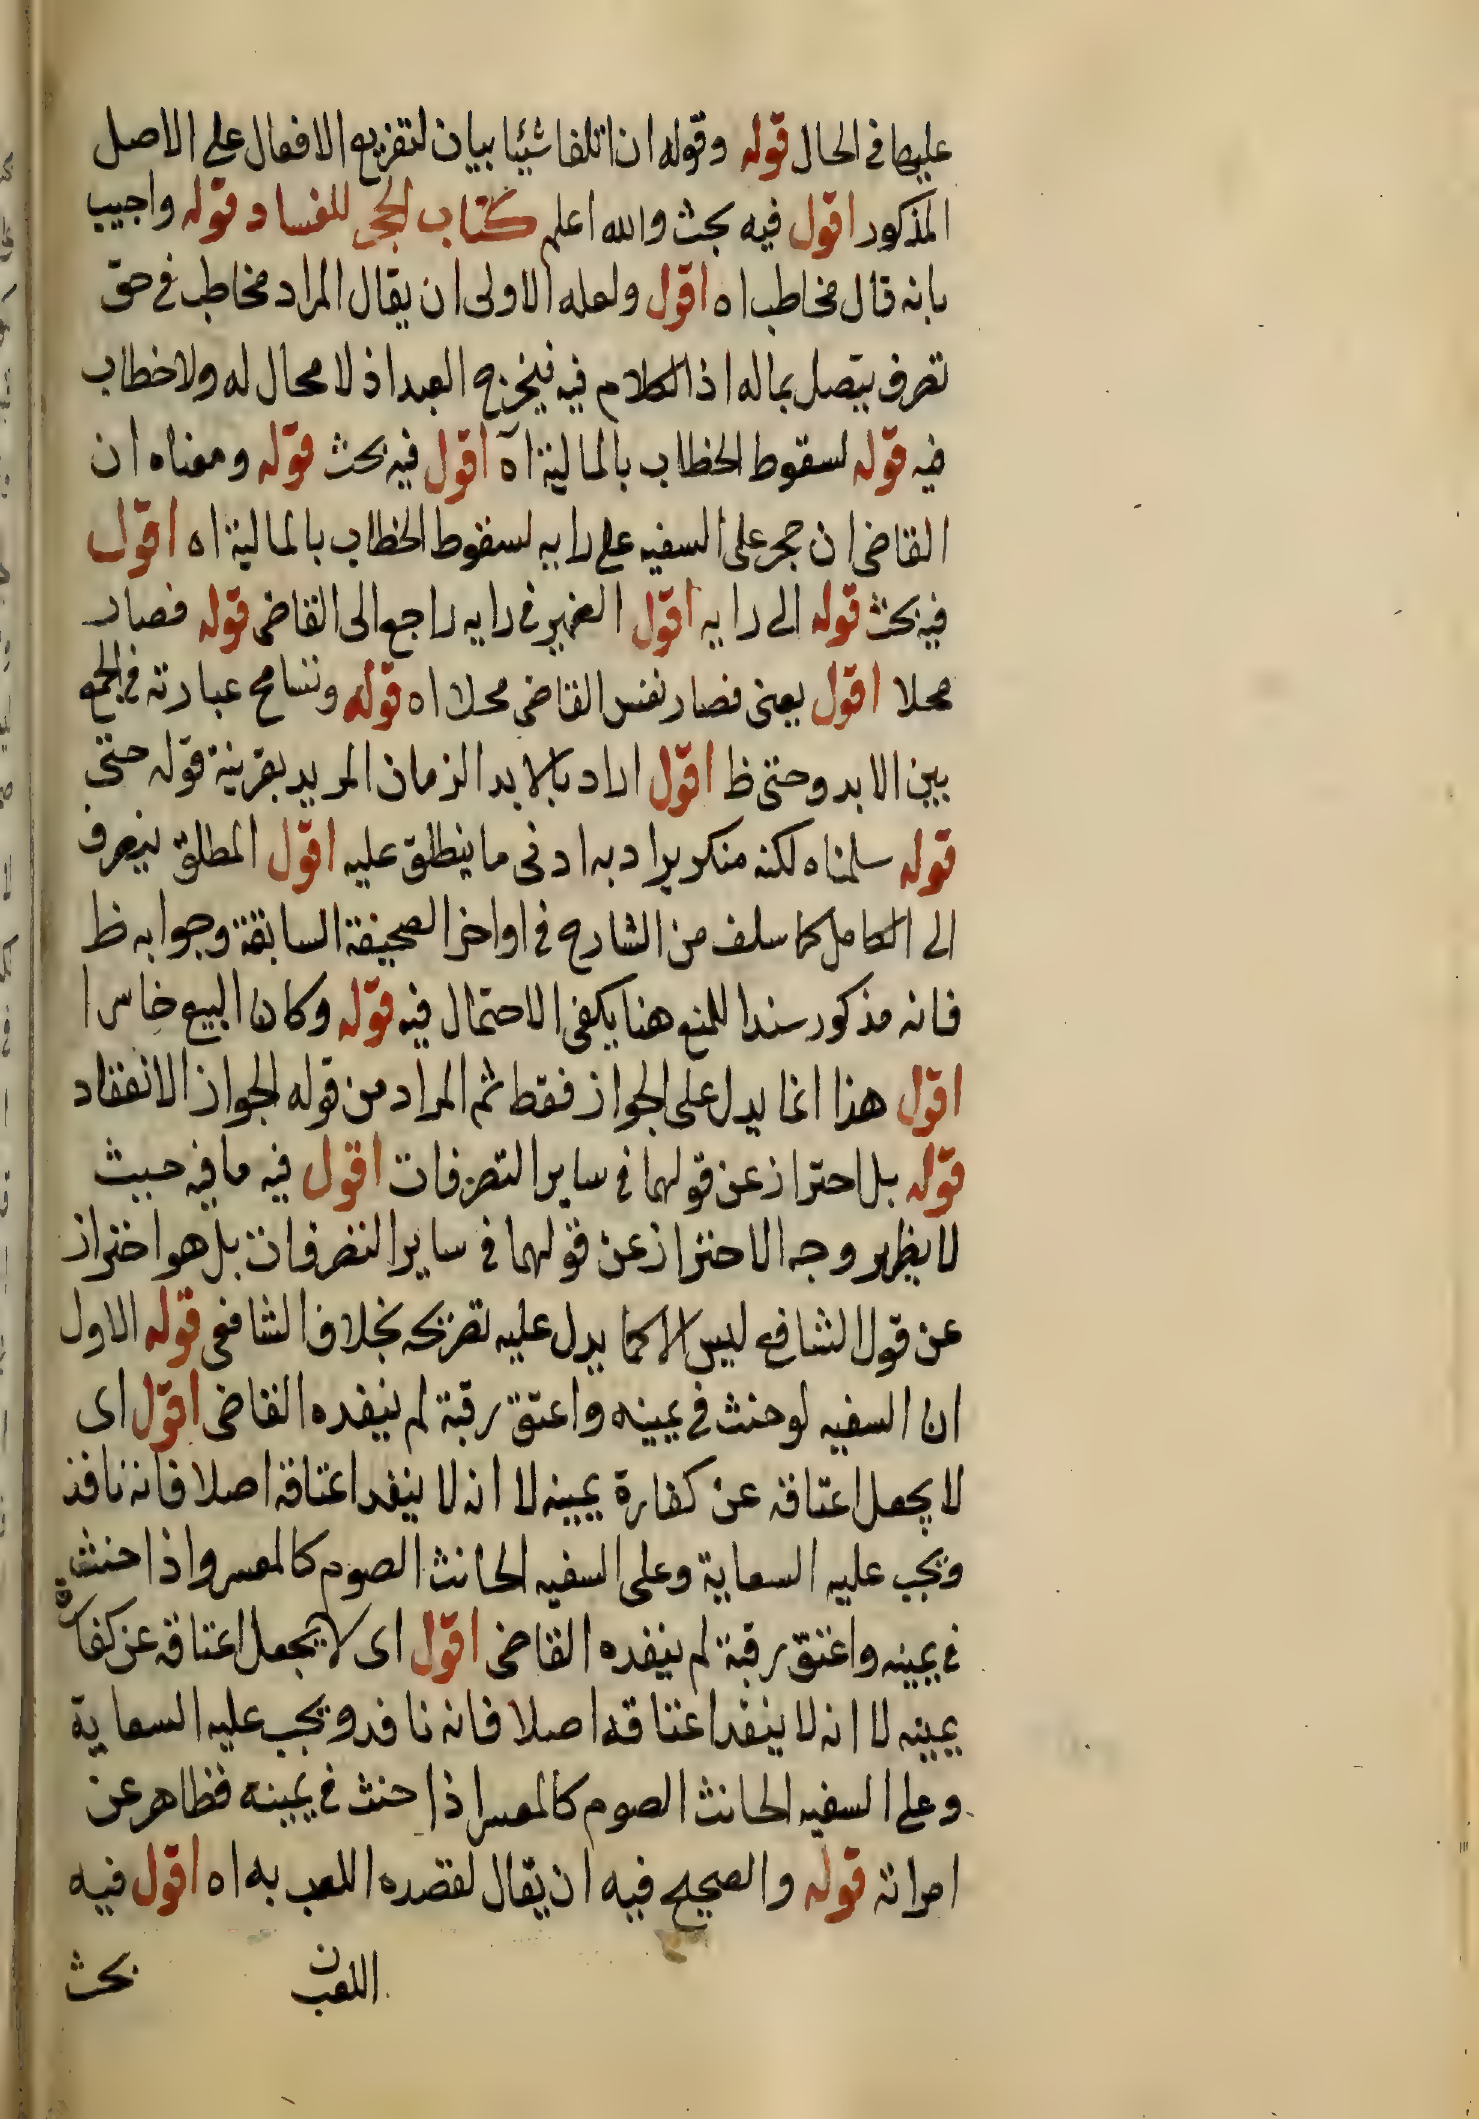 عليها فى الحال قوله وقوله ان اتلفا شيئا بيان لتفريع الافعال على الاصل
المذكور اقول فيه بحث والله اعلم كتاب الحجر للفساد قوله واجيب
بانه قال مخاطب اه اقول ولعله الاولى ان يقال المراد مخاطب فى حق
تصرف يتصل بماله اذ الكلام فيه فيخرج العبد اذ لا محال له ولا خطاب
فيه قوله لسقوط الخطاب بالمالية آه اقول فيه بحث قوله ومعناه ان
القاضى ان حجر على السفيه على رايه لسقوط الخطاب بالمالية اه اقول
فيه بحث قوله الى رايه اقول الضمير فى رايه راجع الى القاضى قوله فصار
محلا اقول يعنى فصار نفس القاضى محلا اه قوله وتسامح عبارته فى الجمع
بين الابد وحتى ظ اقول اراد بالابد الزمان المديد بقرينة قوله حتى
قوله سلمناه لكنه منكر يراد به ادنى ما ينطلق عليه اقول المطلق ينصرف
الى الكامل كما سلف من الشارح فى اواخر الصحيفة السابقة وجوابه ظ
فانه مذكور سندا للمنع هنا يكفى الاحتمال فيه قوله وكان البيع خاسرا
اقول هذا انما يدل على الجواز فقط ثم المراد من قوله الجواز الانعقاد
قوله بل احتراز عن قولهما فى ساير التصرفات اقول فيه ما فيه حيث
لا يظهر وجه الاحتراز عن قولهما فى ساير التصرفات بل هو احتراز
عن قول الشافعى ليس الا كما يدل عليه تصريحه بخلاف الشافعى قوله الاول
ان السفيه لو حنث فى يمينه واعتق رقبة لم ينفده القاضى اقول اى
لا يجعل اعتاقه عن كفارة يمينه لا انه لا ينفد اعتاقه اصلا فانه نافذ
ويجب عليه السعاية وعلى السفيه الحانث الصوم كالمعسر واذا حنث
فى يمينه واعتق رقبة لم ينفده القاضى اقول اى لا يجعل اعتاقه عن كفارة
يمينه لا انه لا ينفد اعتاقه اصلا فانه نافد ويجب عليه السعاية
وعلى السفيه الحانث الصوم كالمعسر اذا حنث فى يمينه فظاهر عن
امراته قوله والصحيح فيه ان يقال لقصده اللعب به اه اقول فيه
بحث